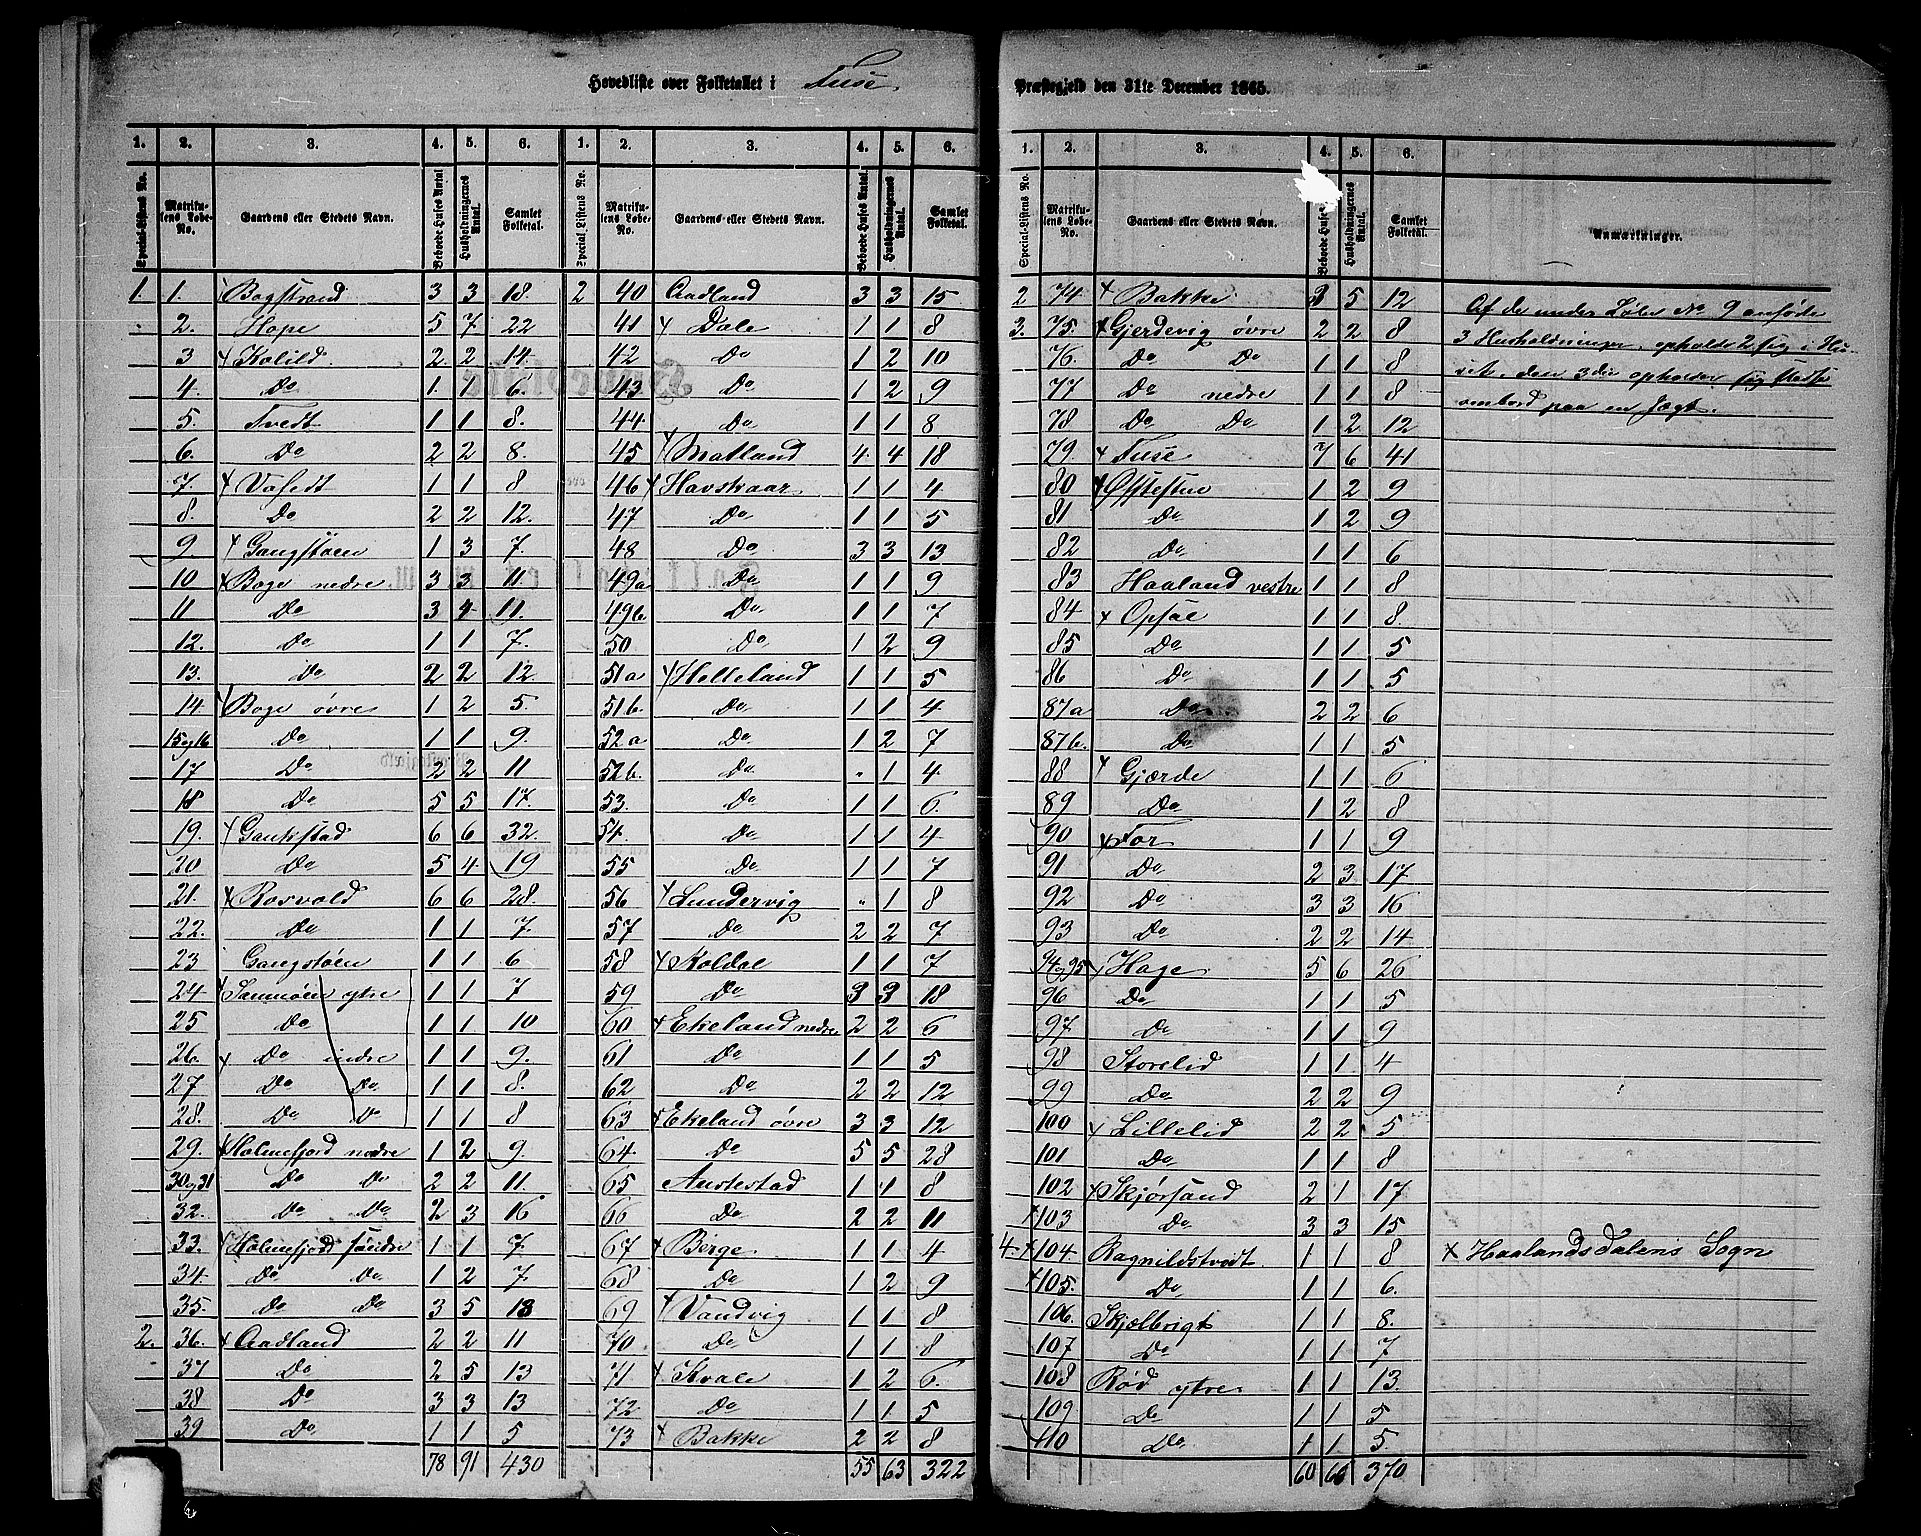 Hovedliste over Folketallet i Fuse
Præstegjeld den 31te December 1865.
1. 2. 3. 4. 5. 6.
Special-Listens No. Matrikulens Løbe-No. Gaardens eller Stedets Navn. Beboede Huses Antal Husholdningernes Antal. Samlet Folketal.
1. 1. Bogstrand 3 3 18
2. Hope 5 7 22
3 Kolild 2 2 14.
4. Do 1 1 6.
5. Tvedt 1 1 8.
6. Do 2 2 8.
7. Vasedt 1 1 8
8. Do 2 2 12.
9 Gangstøen 1 3 7.
10 Boge nedre 3 3 11.
11 Do 3 4 11.
12. Do 1 1 7.
13. Do 2 2 12.
14. Boge øvre 1 2 5.
15 og 16 Do 1 1 9.
17 Do 2 2 11
18 Do 5 5 17.
19. Gaukstad 6 6 32.
20 Do 5 4 19
21. Rosvold 6 6 28.
22. Do 1 1 7.
23 Gangstøen 1 1 6
24 Samnøen ytre 1 1 7
25 Do 1 1 10
26. Do indre 1 1 9.
27 Do Do 1 1 8.
28. Do Do 1 1 8
29. Holmefjord nedre 1 2 9.
30 og 31 Do Do 2 2 11
32. Do Do 2 3 16
33. Holmefjord søndre 1 1 7.
34. Do Do 1 2 7.
35. Do Do 3 5 13
2. 36. Aadland 2 2 11
37 Do 2 5 13
38 Do 3 3 13
39 Do 1 1 5
78 91 430
1. 2. 3. 4. 5. 6.
Special Listens No. Matrikulens Løbe-No. Gaardens eller Stedets Navn. Beboede Huses Antal. Husholdningernes Antal. Samlet Folketal.
2 40 Aadland 3 3 15
41 Dale 1 1 8
42 Do 1 2 10
43 Do 1 2 9
44 Do 1 1 8
45 Matland 4 4 18
46 Havskaar 1 1 4
47 Do 1 1 5
48 Do 3 3 13
49a Do 1 1 9
49b Do 1 1 7
50 Do 1 2 9
51a Helleland 1 1 5
51b. Do 1 1 4
52a Do 1 2 7
52b. Do " 1 4
53. Do 1 1 6.
54. Do 1 1 4
55 Do 1 1 7
56 Lundervig " 1 8
57 Do 2 2 7
58 Koldal 1 1 7
59 Do 3 3 18
60 Ekeland nedre 2 2 6
61 Do 1 1 5
62 Do 2 2 12
63 Ekeland øvre 3 3 12
64 Do 5 5 28
65 Austestad 1 1 8
66 Do 2 2 11
67 Berge 1 1 4
68 Do 1 2 9
69 Vandvig 1 1 8
70 Do 1 1 8
71 Hvale 1 2 6.
72 Do 1 1 5
73 Bakke 2 2 8
55 63 322
1. 2. 3. 4. 5. 6.
Special-Listens No. Matrikulens Løbe-No. Gaardens eller Stedets Navn. Beboede Huses Husholdningernes Antal. Samlet Folketal. Anmærkninger.
2 74 Bakke 3 5 12
3. 75. Gjerdevig øvre 2 2 8
76. Do Do 1 1 8
77 Do nedre 1 1 8
78 Do Do 1 2 12
79 Fuse 7 6 41
80 Øffestun 1 2 9
81 Do 1 2 9
82 Do 1 1 6
83 Haaland vestre 1 1 8
84 Opsal 1 1 8.
85 Do 1 1 5
86 Do 1 1 5
87a Do 2 2 6
87b. Do 1 1 5
88 Gjærde 1 1 6
89 Do 1 2 8
90 For 1 1 9
91 Do 2 3 17
92 Do 3 3 16
93 Do 2 2 14
94 og 95 Hage 5 6 26
96 Do 1 1 5
97 Do 1 1 9
98 Storelid 1 1 4
99 Do 2 2 9
100 Lillelid 2 2 5
101 Do 1 1 8
102 Skjørsand 2 1 17
103 Do 3 3 15
4. 104 Ragnildstvedt 1 1 8 × Haalandsdalens Sogn
105. Do 1 1 6.
106. Skjælbrigt 1 1 8.
107 Do 1 1 7
108 Rød ytre 1 1 13.
109 Do 1 1 5
110 Do 1 1 5.
60 66 370
Af de under Løbe No 9 anførte
3 Husholdninger, opholde 2 sig i Hu-
set, den 3die opholder sig stedse
ombord paa en Jægt.